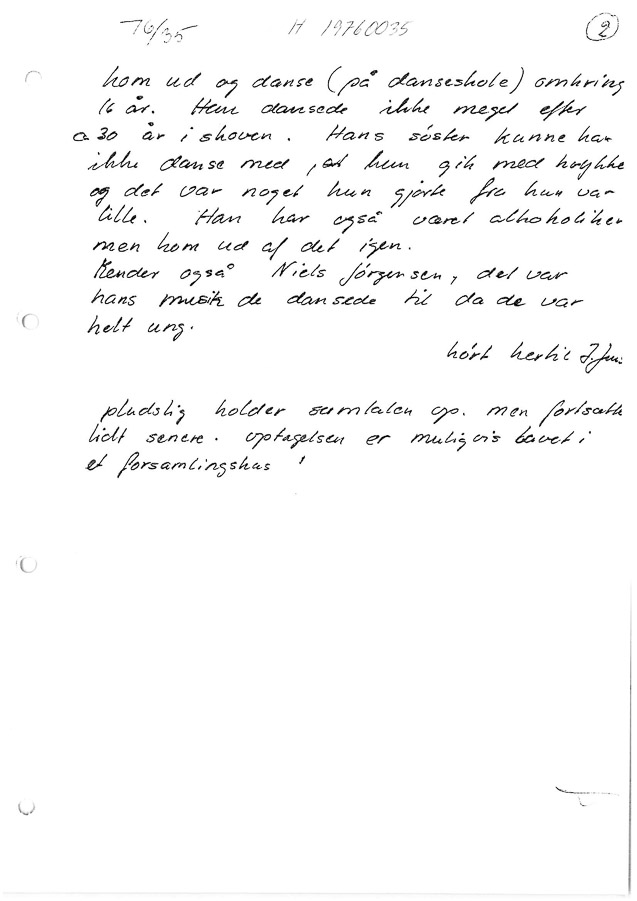 76/35 H 19760035 2
kom ud og danse (på danseskole) omkring
16 år. Han dansede ikke meget efter
ca 30 år i skoven. Hans søster kunne har
ikke danse med, at hun gik med krykke
og det var noget hun gjorte fra hun var
lille. Han har også været alkoholiker
men kom ud af det igen.
Kender også Niels Jørgensen, det var
hans musik de dansede til da de var
helt ung.
hørt hertil
pludslig holder samtalen op. men fortsætt
lidt senere. optagelsen er muligvis lavet i
et forsamlingshus !